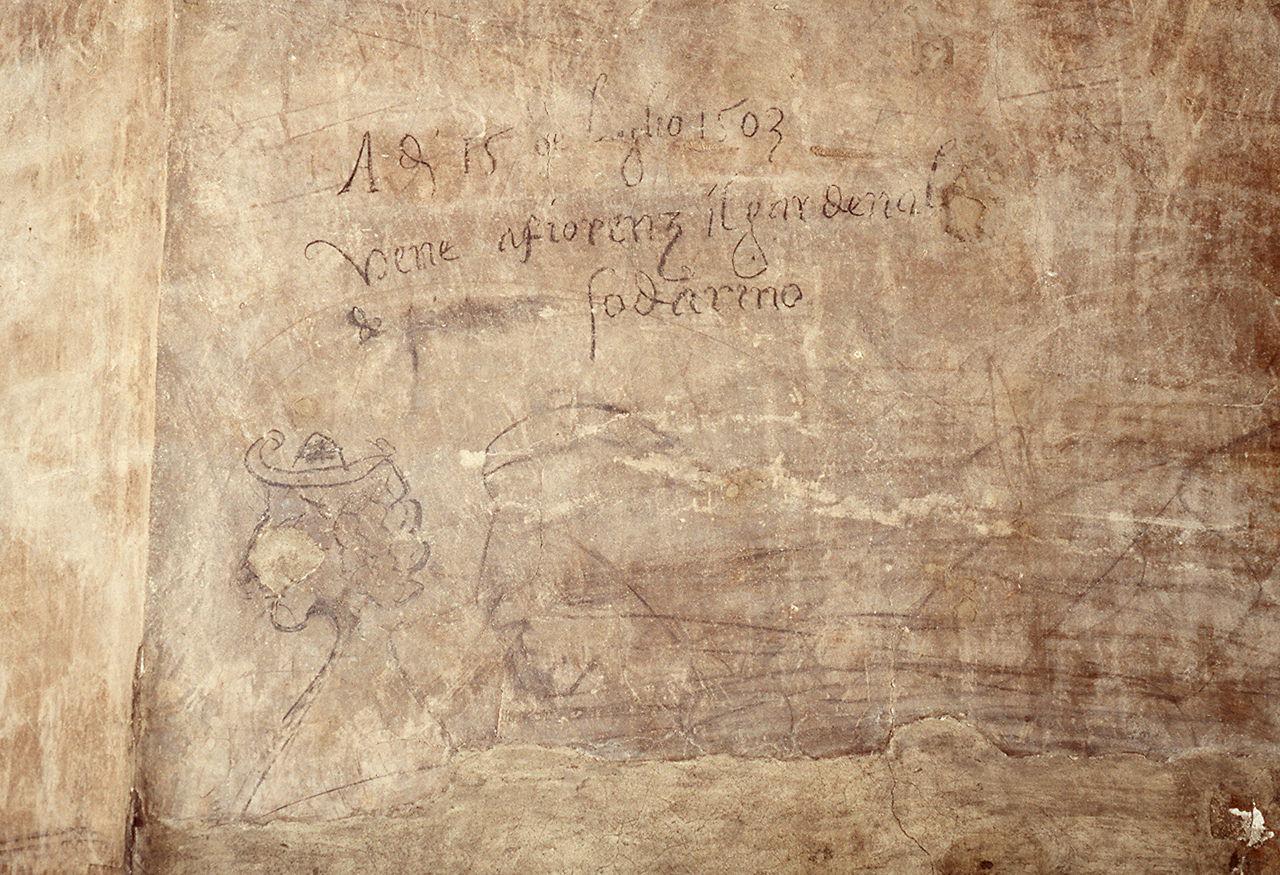 Adi 15 de luglio 1503
vene afiorenz il gardenal
de sodarino